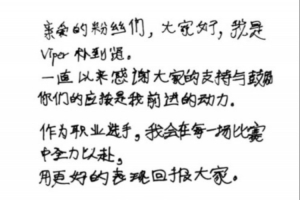 亲爱的粉丝们，大家好，我是
Viper 朴到贤。
一直以来感谢大家的支持与鼓励
你们的应援是我前进的动力。
作为职业选手，我会在每一场比赛
中全力以赴，
用更好的表现回报大家。